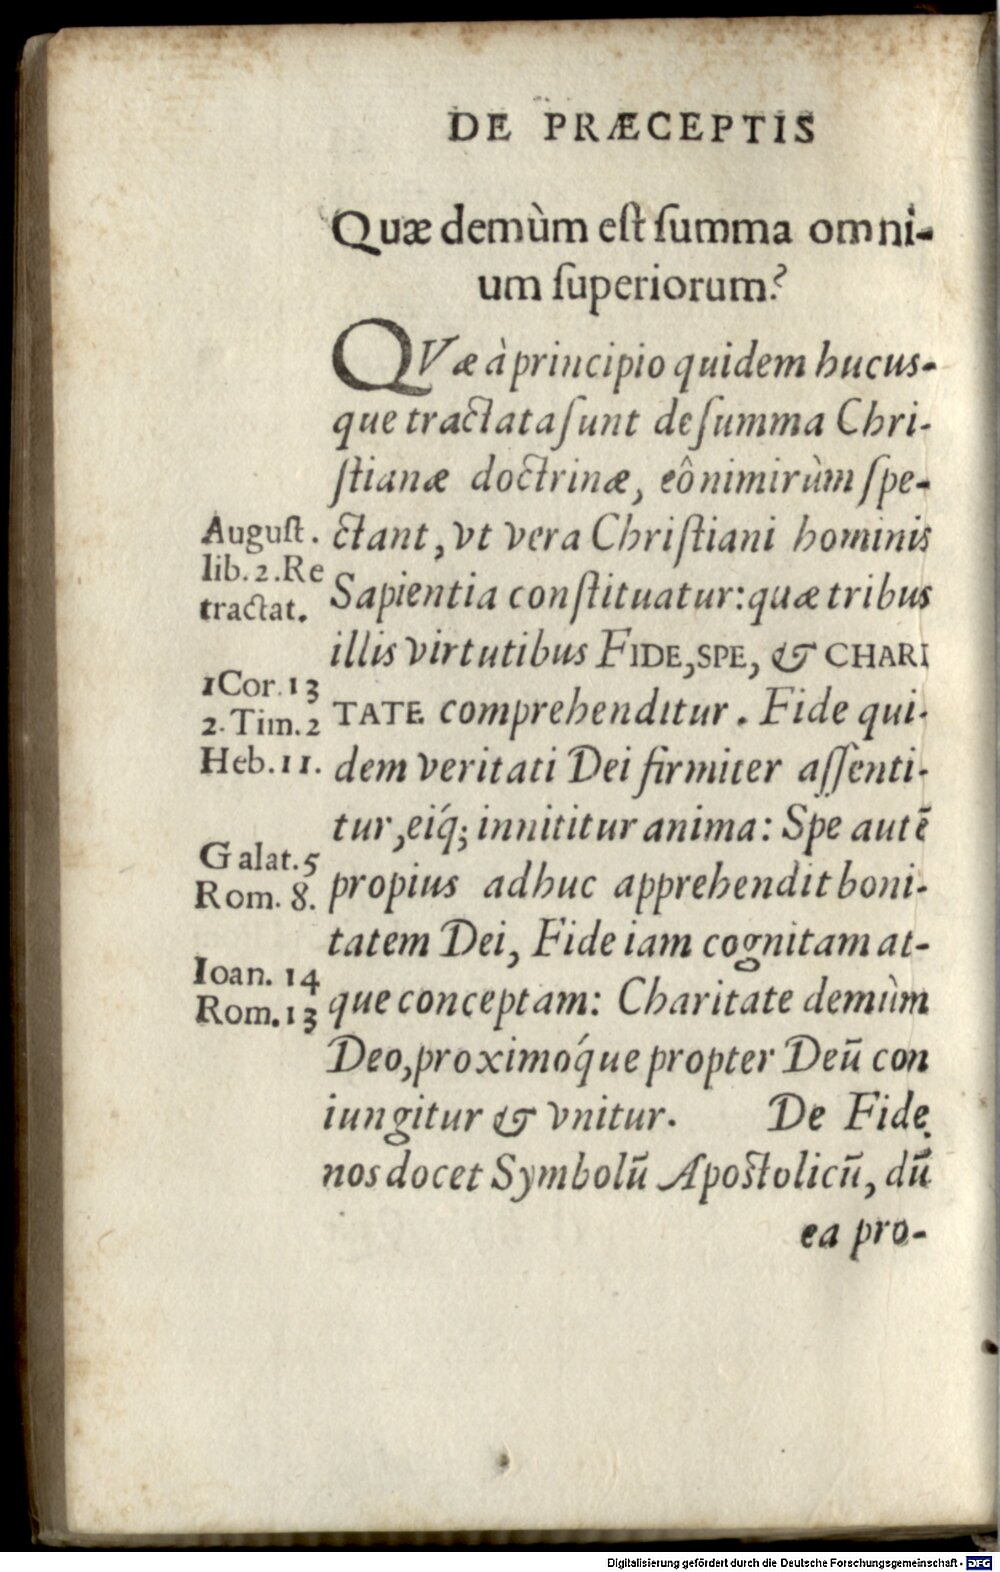 DE PRÆCEPTIS
Quæ demùm eſt ſumma omni-
um ſuperiorum?
QVæ à principio quidem hucus-
que tractata ſunt de ſumma Chri-
ſtianæ doctrinæ, eô nimirùm ſpe-
ctant, vt vera Chriſtiani hominis
Sapientia conſtituatur: quæ tribus
illis virtutibus FIDE, SPE, & CHARI
TATE comprehenditur. Fide qui-
dem veritati Dei firmiter aſſenti-
tur, eíq́; innititur anima: Spe autē
propius adhuc apprehendit boni-
tatem Dei, Fide iam cognitam at-
que conceptam: Charitate demùm
Deo, proximóque propter Deū con
iungitur & vnitur. De Fide
nos docet Symbolū Apoſtolicū, dū
ea pro-
Auguſt.
lib. 2. Re
tractat.
1 Cor. 13
2. Tim. 2
Heb. 11.
Galat. 5
Rom. 8.
Ioan. 14
Rom. 13
Digitalisierung gefördert durch die Deutsche Forschungsgemeinschaft - DFG